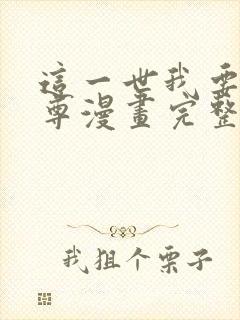 這一世我要
尊漫畫完整
我狙个栗子